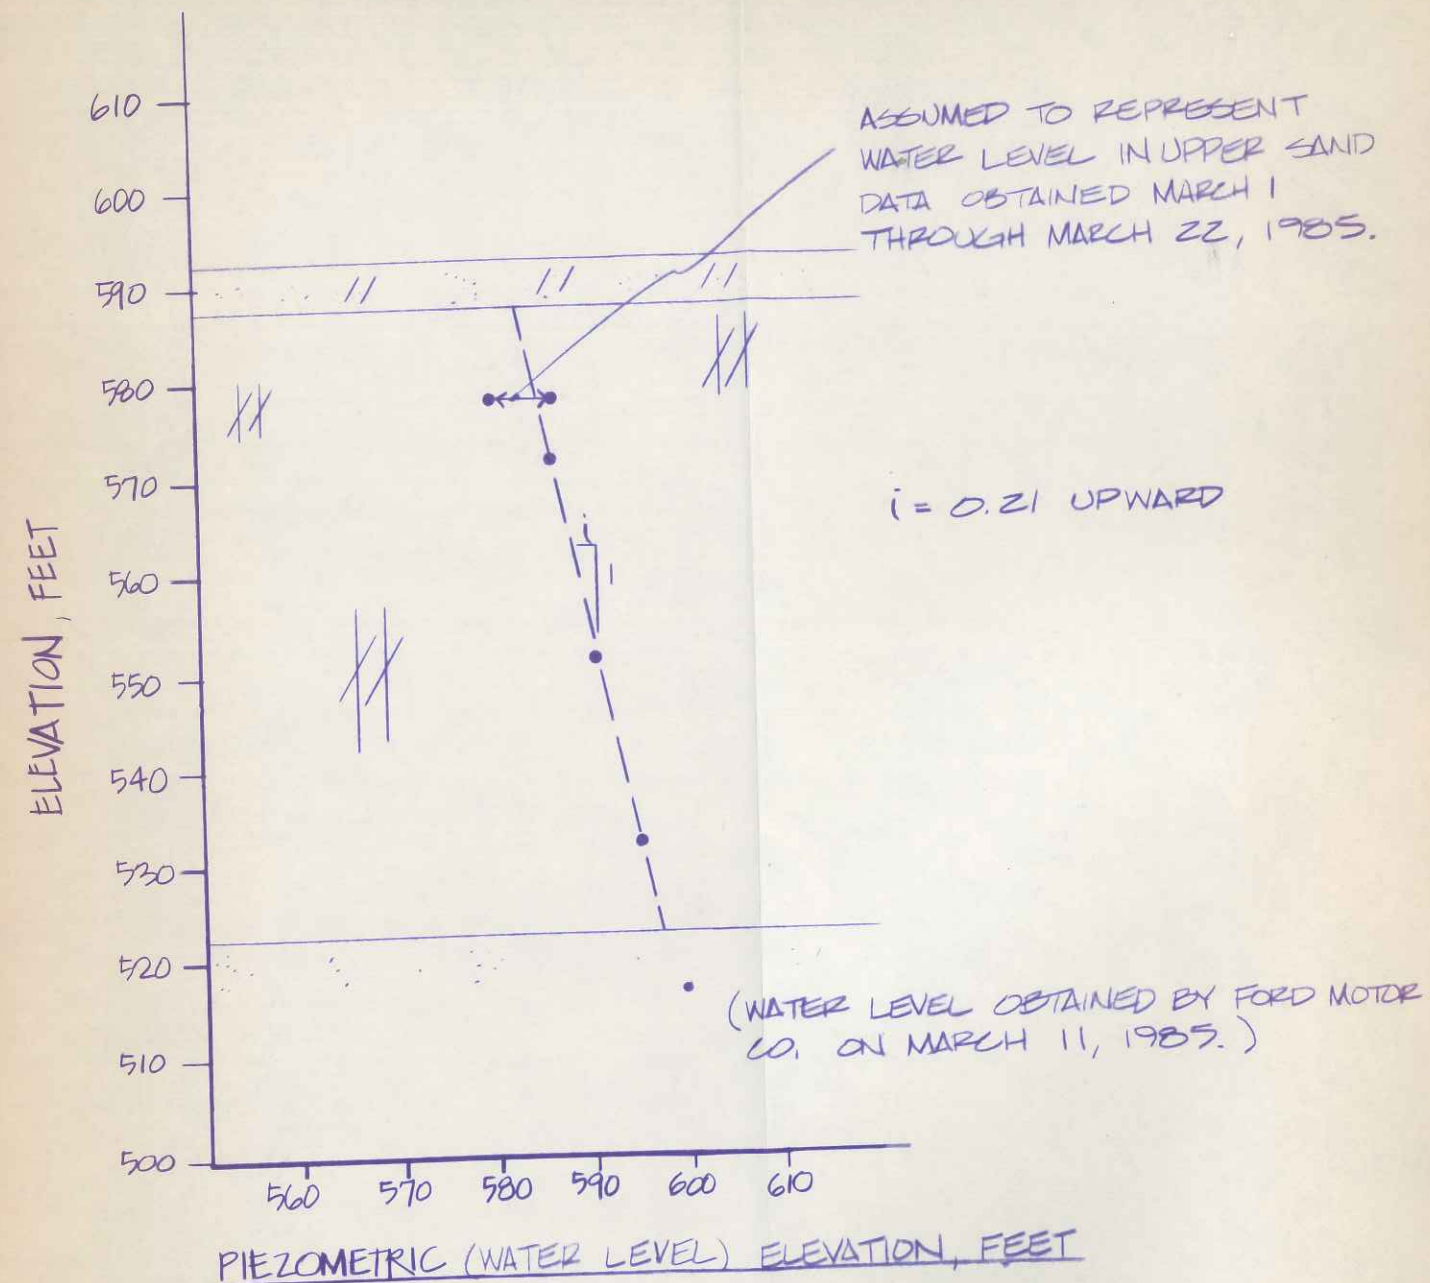 610
600
590
580
570
560
550
540
530
520
510
500
ELEVATION, FEET
ASSUMED TO REPRESENT
WATER LEVEL IN UPPER SAND
DATA OBTAINED MARCH 1
THROUGH MARCH 22, 1985.
i = 0.21 UPWARD
i
1
(WATER LEVEL OBTAINED BY FORD MOTOR
CO. ON MARCH 11, 1985.)
560 570 580 590 600 610
PIEZOMETRIC (WATER LEVEL) ELEVATION, FEET